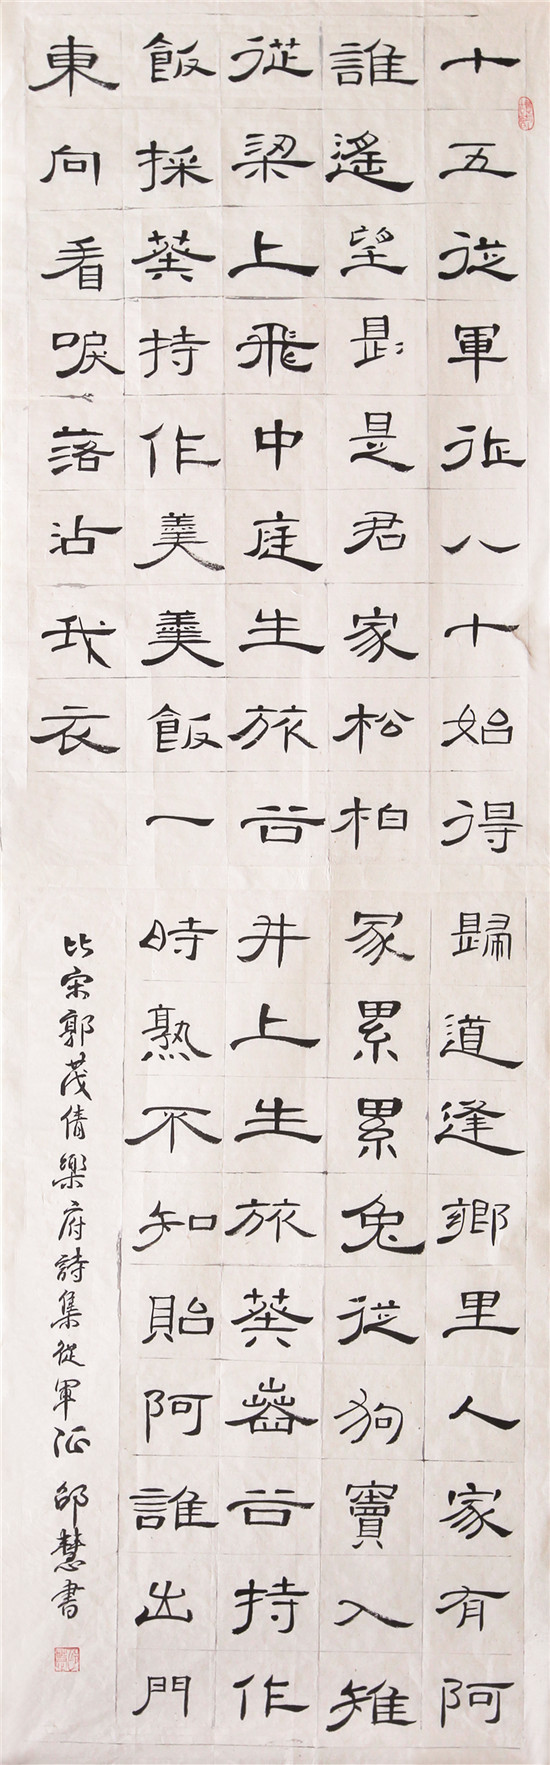 十五從軍征八十始得歸道逢鄉里人家有阿
誰遙望是是君家松柏冢累累兔從狗竇入雉
從梁上飛中庭生旅谷井上生旅葵舂谷持作
飯採葵持作羹羹飯一時熟不知貽阿誰出門
東向看唳落沾我衣
此宋郭茂倩樂府詩集從軍征 邵慧書